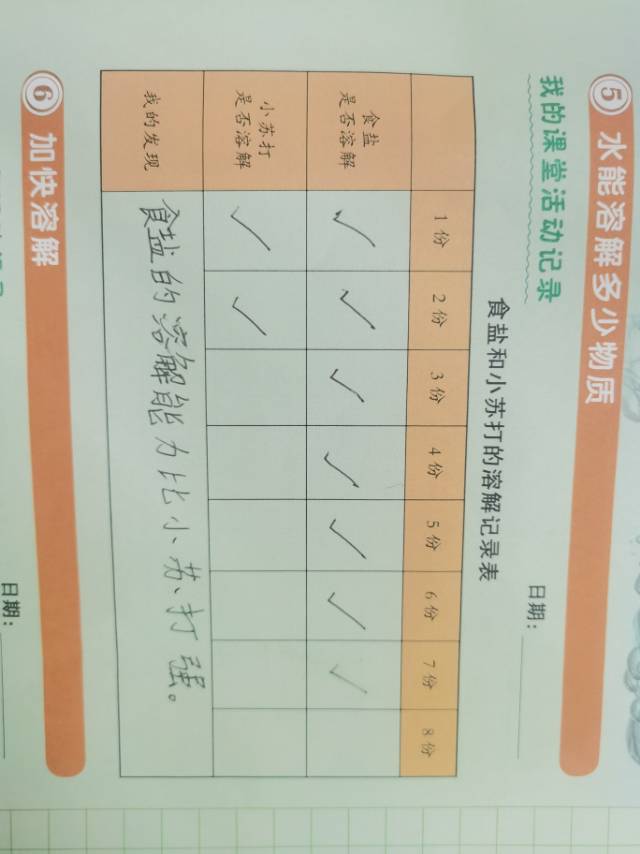 ⑤ 水能溶解多少物质
我的课堂活动记录
日期:
食盐和小苏打的溶解记录表
1份 2份 3份 4份 5份 6份 7份 8份
食盐
是否溶解 ✓ ✓ ✓ ✓ ✓ ✓ ✓
小苏打
是否溶解 ✓ ✓
我的发现 食盐的溶解能力比小苏打强。
⑥ 加快溶解
日期: